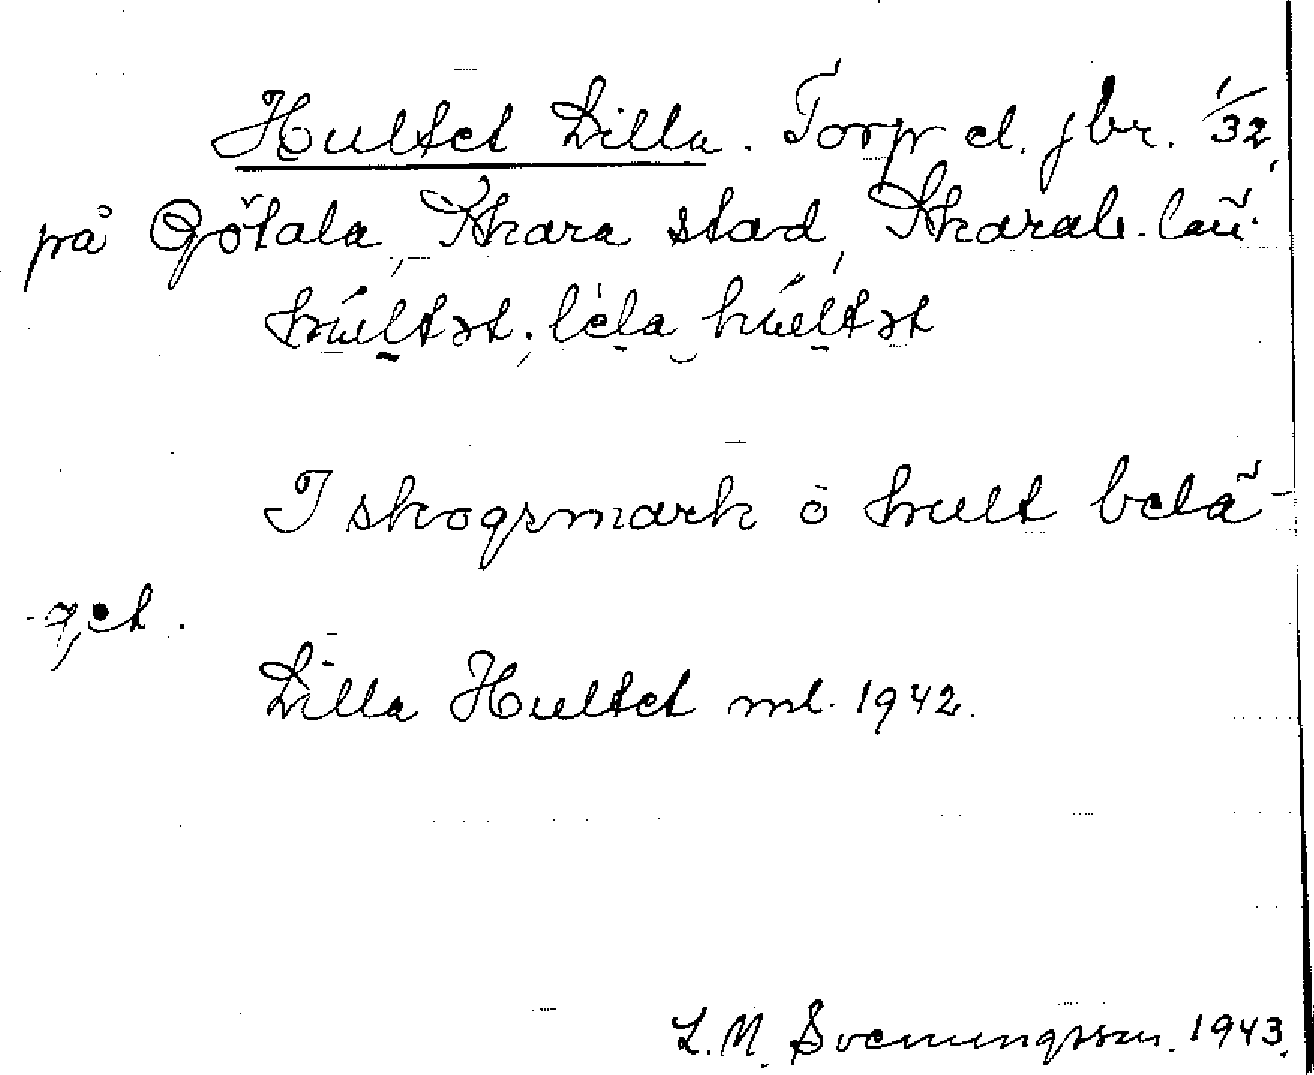 Hultet Lilla. Torp el. jbr. 1/32
på Götala, Skara stad, Skarab. län.
húltət, lèla húltət
I skogsmark o hult belä-
get.
Lilla Hultet ml. 1942.
L. M. Svenungsson. 1943.